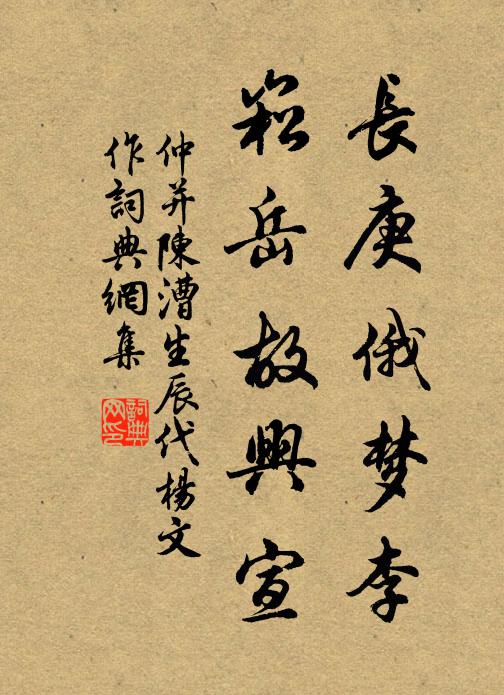 長庚俄梦李
崧岳故興宣
仲并陳漕生辰代楊文
作詞典網集
詞典网印